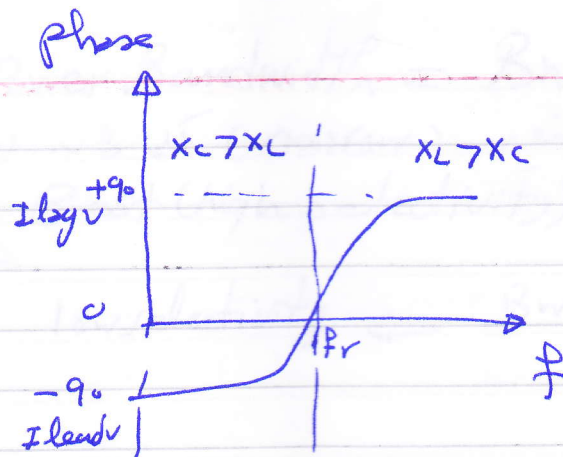 Phase
Xc > XL
XL > Xc
+90
I lag V
0
fr
f
-90
I lead V